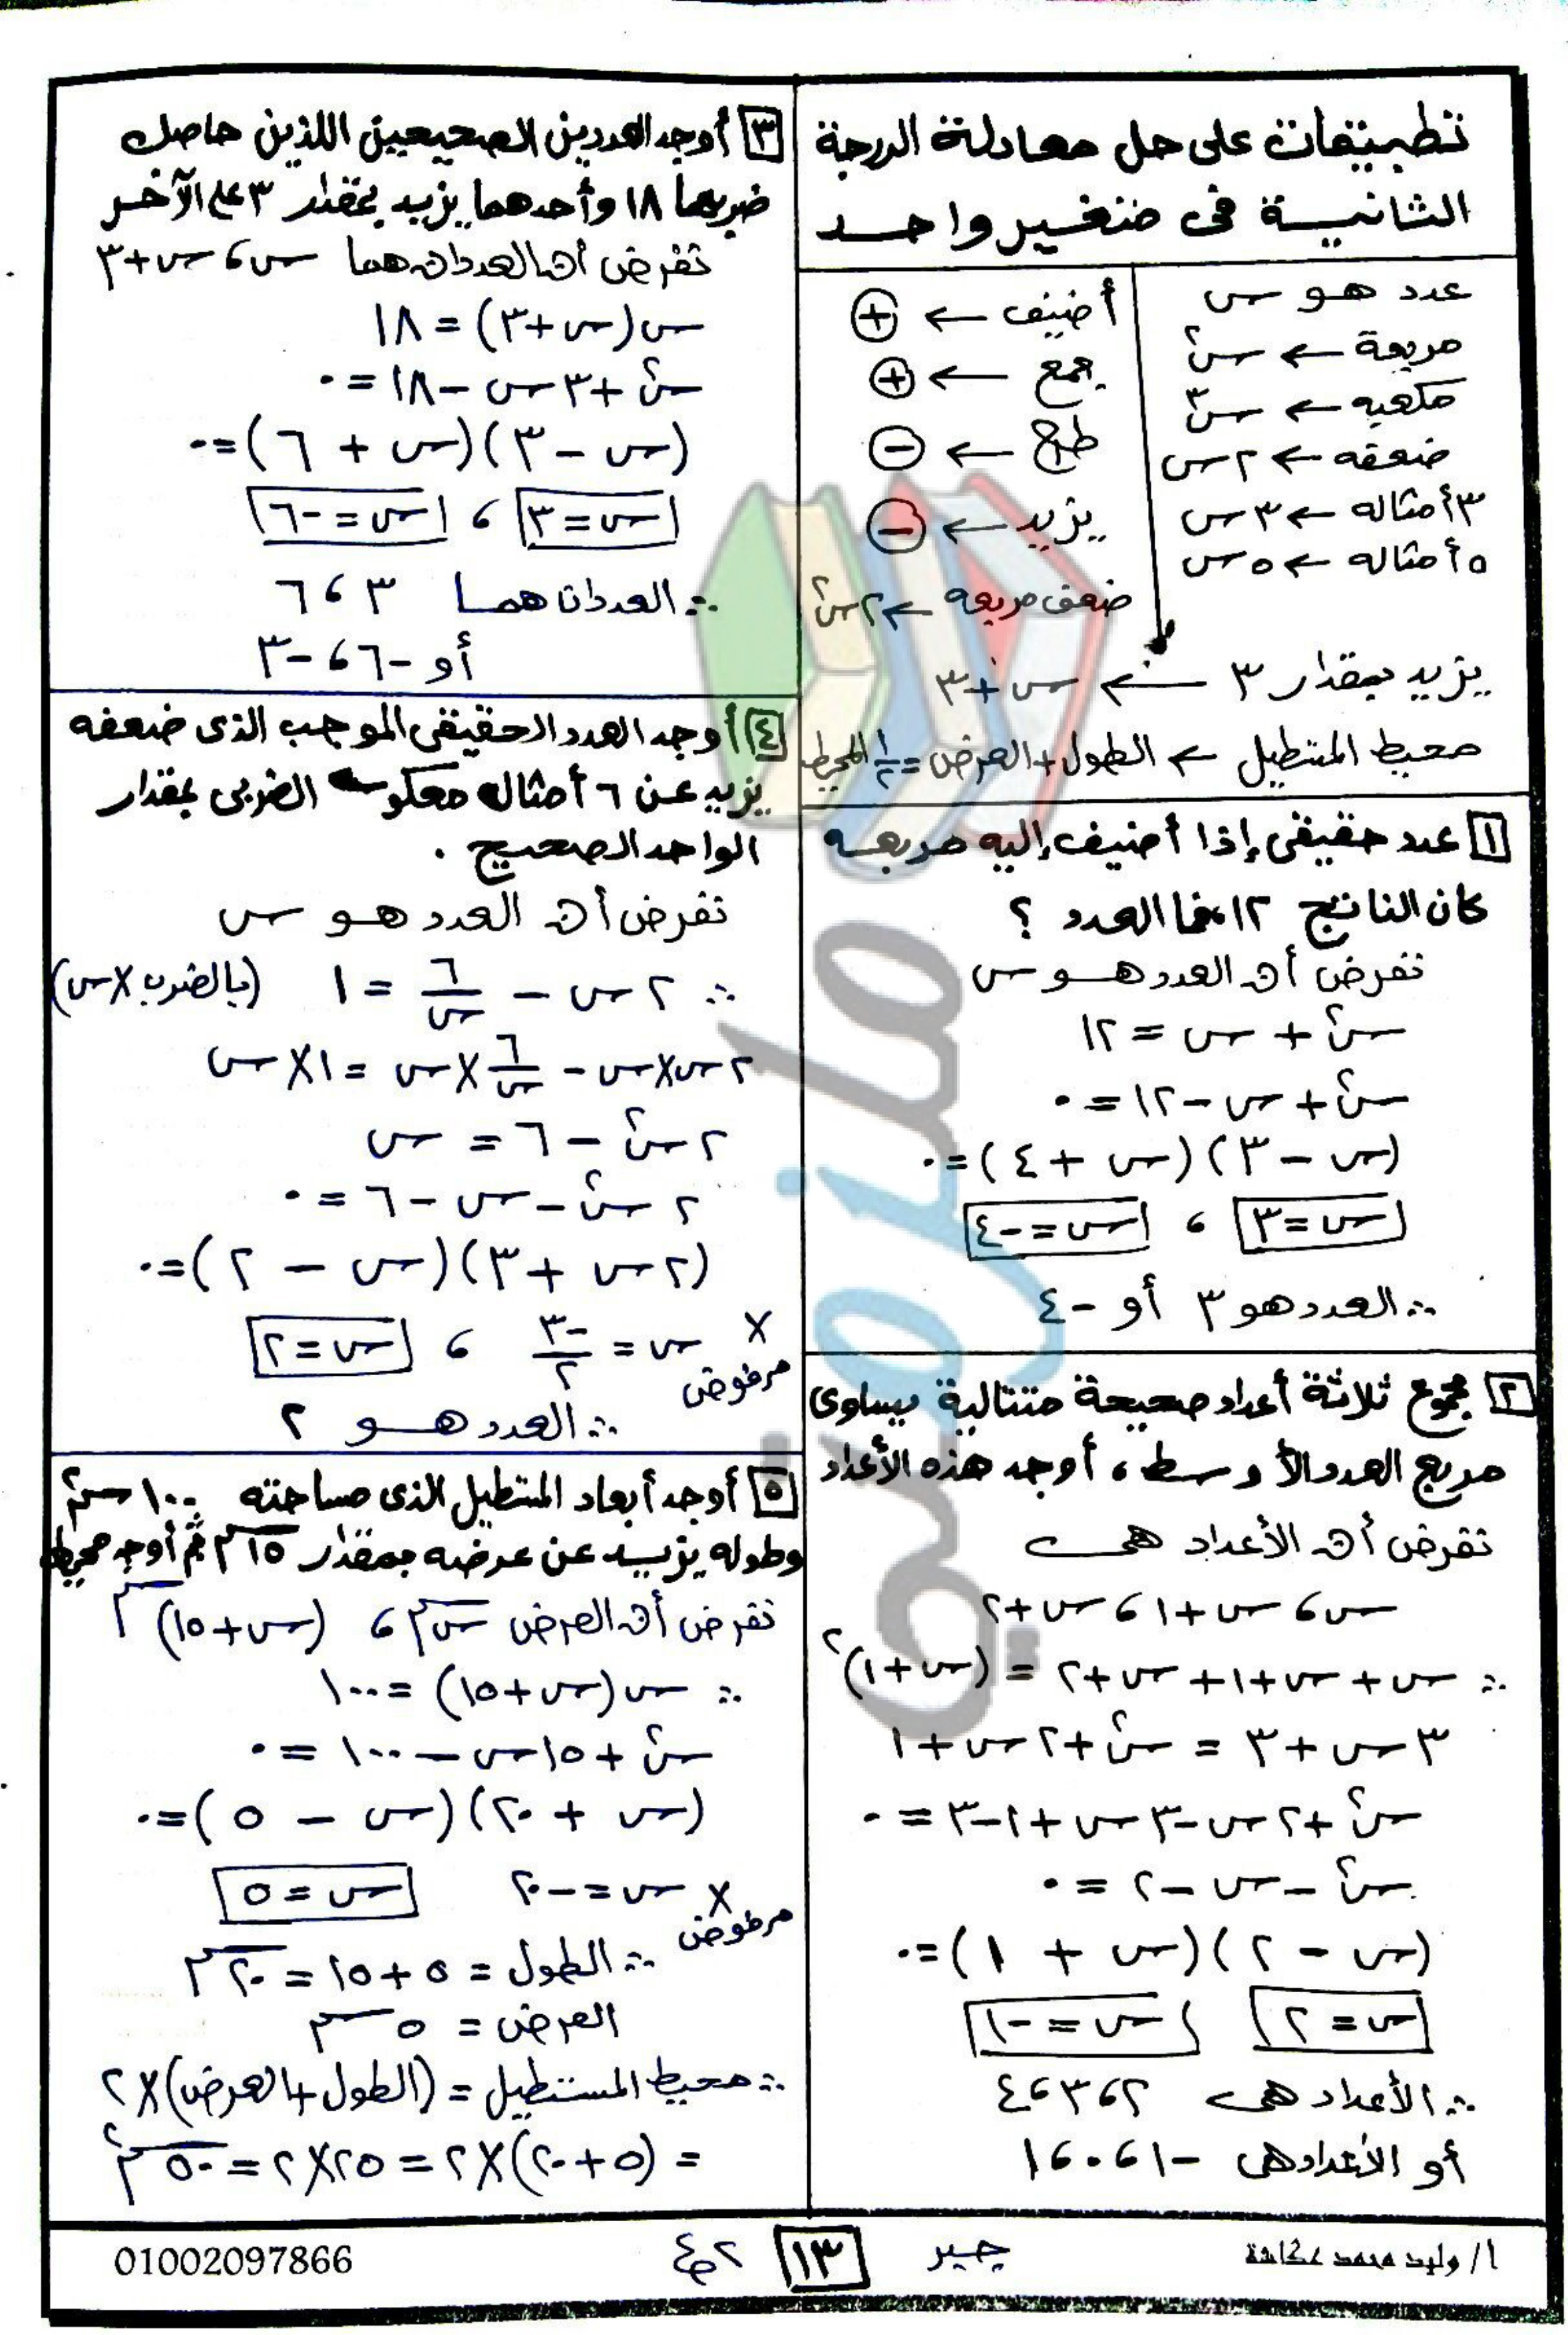 تطبيقات على حل معادلة الدرجة
الثانية فى متغير واحد
عدد هو س
مربعة ← س²
مكعبه ← س³
ضعفه ← ٢س
٣ أمثاله ← ٣س
٥ أمثاله ← ٥س
أضيف ← +
جمع ← +
طرح ← −
يزيد ← −
ضعف مربعه ← ٢س²
يزيد بمقدار ٣ ← س+٣
محيط المستطيل ← الطول + العرض = ١/٢ المحيط
١ عدد حقيقى إذا أضيف إليه مربعه
كان الناتج ١٢ فما العدد ؟
نفرض أن العدد هو س
س² + س = ١٢
س² + س − ١٢ = ٠
(س − ٣)(س + ٤) = ٠
س = ٣ ، س = −٤
∴ العدد هو ٣ أو −٤
٢ مجموع ثلاثة أعداد صحيحة متتالية يساوى
مربع العدد الأوسط ، أوجد هذه الأعداد
نفرض أن الأعداد هى
س ، س+١ ، س+٢
∴ س + س+١ + س+٢ = (س+١)²
٣س + ٣ = س² + ٢س + ١
س² + ٢س − ٣س + ١ − ٣ = ٠
س² − س − ٢ = ٠
(س − ٢)(س + ١) = ٠
س = ٢ س = −١
∴ الأعداد هى ٢ ، ٣ ، ٤
أو الأعداد هى −١ ، ٠ ، ١
٣ أوجد العددين الصحيحين اللذين حاصل
ضربهما ١٨ وأحدهما يزيد بمقدار ٣ على الآخر
نفرض أن العددان هما س ، س+٣
س(س+٣) = ١٨
س² + ٣س − ١٨ = ٠
(س − ٣)(س + ٦) = ٠
س = ٣ ، س = −٦
∴ العددان هما ٣ ، ٦
أو −٦ ، −٣
٤ أوجد العدد الحقيقى الموجب الذى ضعفه
يزيد عن ٦ أمثال معكوسه الضربى بمقدار
الواحد الصحيح .
نفرض أن العدد هو س
∴ ٢س − ٦/س = ١ (بالضرب × س)
٢س × س − ٦/س × س = ١ × س
٢س² − ٦ = س
٢س² − س − ٦ = ٠
(٢س + ٣)(س − ٢) = ٠
× س = −٣/٢ ، س = ٢
مرفوض
∴ العدد هو ٢
٥ أوجد أبعاد المستطيل الذى مساحته ١٠٠ سم²
وطوله يزيد عن عرضه بمقدار ١٥ سم ثم أوجد محيطه
نفرض أن العرض س سم ، (س+١٥) سم
∴ س(س+١٥) = ١٠٠
س² + ١٥س − ١٠٠ = ٠
(س + ٢٠)(س − ٥) = ٠
× س = −٢٠ س = ٥
مرفوض
∴ الطول = ٥ + ١٥ = ٢٠ سم
العرض = ٥ سم
∴ محيط المستطيل = (الطول + العرض) × ٢
= (٥ + ٢٠) × ٢ = ٢٥ × ٢ = ٥٠ سم
أ/ وليد محمد عكاشة
جبر
١٣
٢ع
01002097866